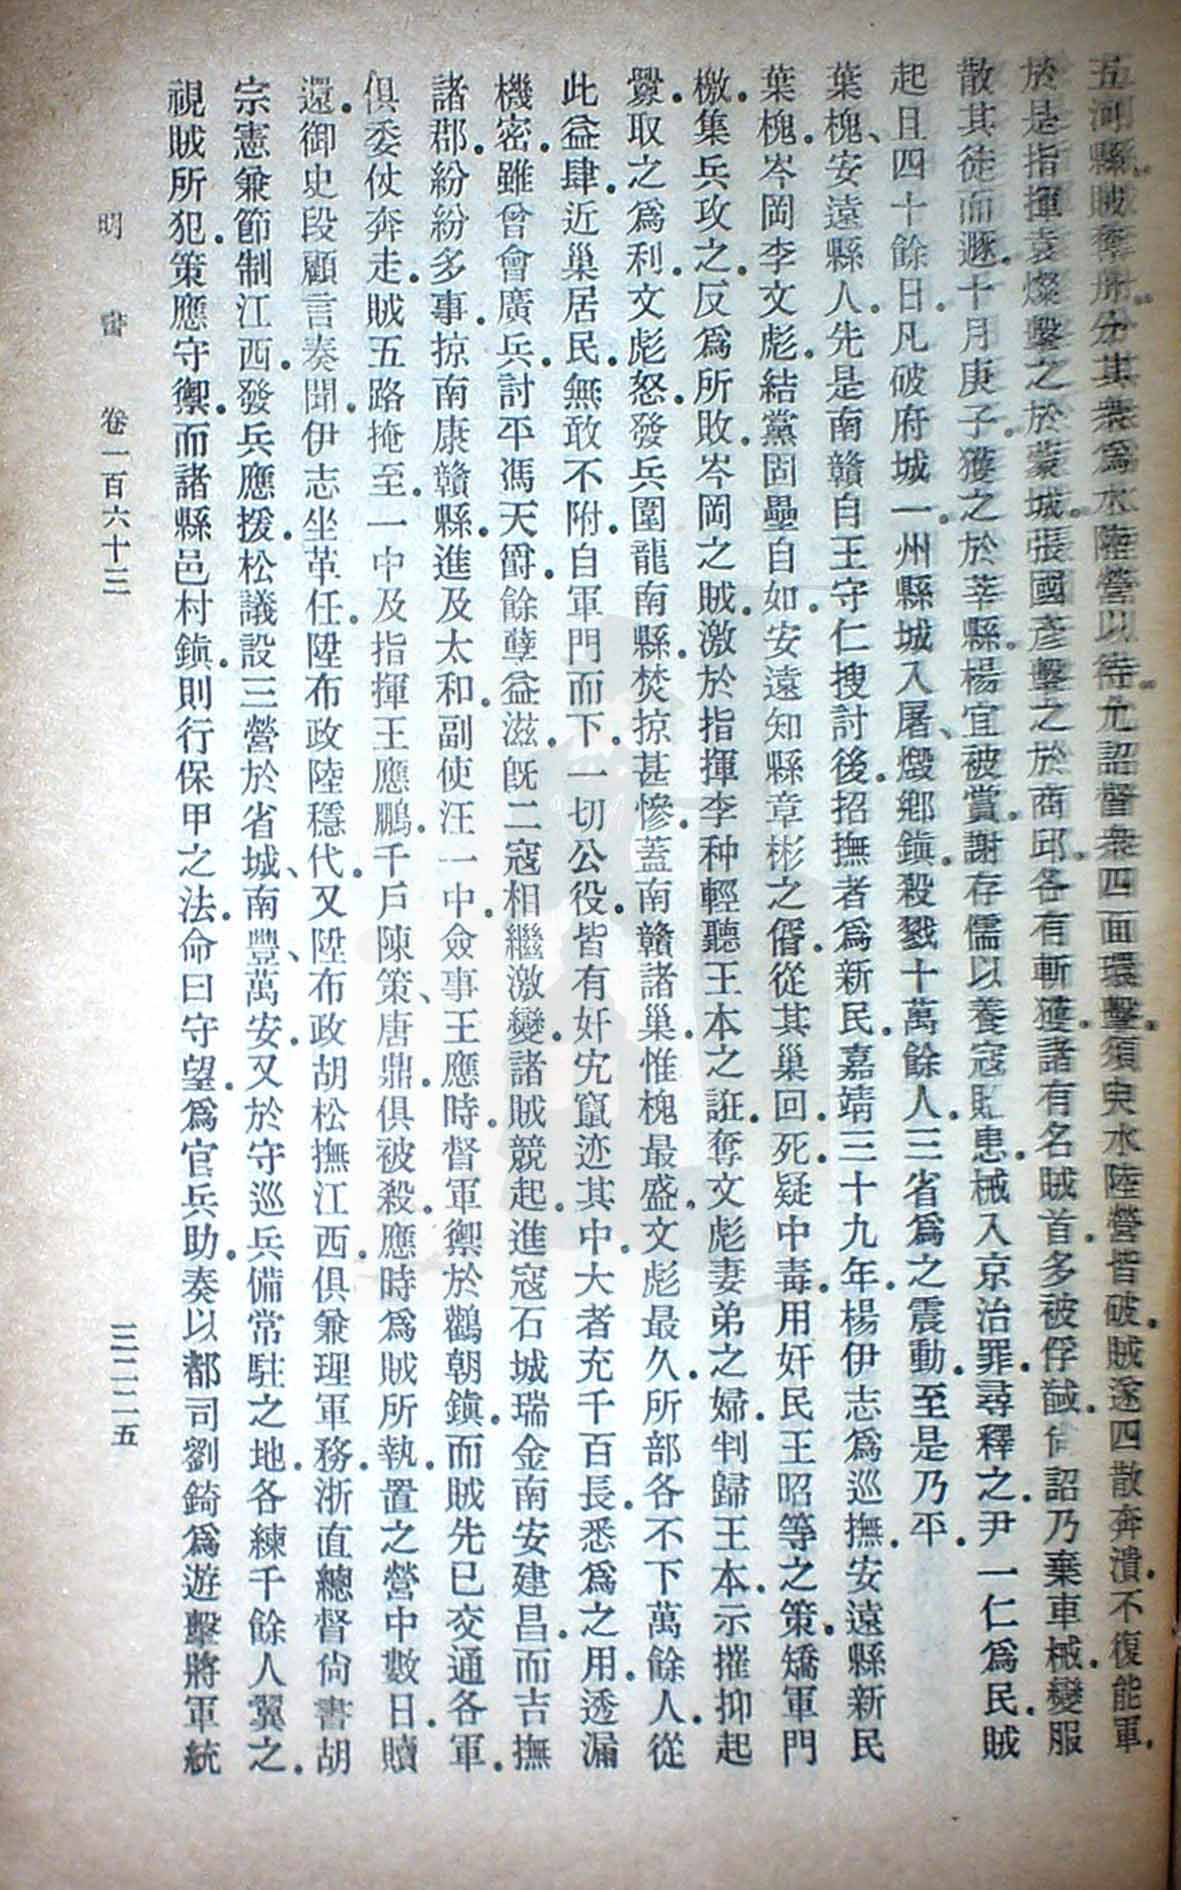 五河縣賊奪舟分其衆爲水陸營以待尤詔督衆四面環擊須臾水陸營皆破賊遂四散奔潰不復能軍
於是指揮袁燦擊之於蒙城張國彥擊之於商邱各有斬獲諸有名賊首多被俘馘尙詔乃棄車械變服
散其徒而遯十月庚子獲之於莘縣楊宜被賞謝存儒以養寇貽患械入京治罪尋釋之尹一仁爲民賊
起且四十餘日凡破府城一州縣城入屠燬鄉鎭殺戮十萬餘人三省爲之震動至是乃平
葉槐安遠縣人先是南贛自王守仁搜討後招撫者爲新民嘉靖三十九年楊伊志爲巡撫安遠縣新民
葉槐岑岡李文彪結黨固壘自如安遠知縣章彬之僭從其巢回死疑中毒用奸民王昭等之策矯軍門
檄集兵攻之反爲所敗岑岡之賊激於指揮李种輕聽王本之誑奪文彪妻弟之婦判歸王本示摧抑起
釁取之爲利文彪怒發兵圍龍南縣焚掠甚慘蓋南贛諸巢惟槐最盛文彪最久所部各不下萬餘人從
此益肆近巢居民無敢不附自軍門而下一切公役皆有奸宄竄迹其中大者充千百長悉爲之用透漏
機密雖曾會廣兵討平馮天爵餘孽益滋旣二寇相繼激變諸賊競起進寇石城瑞金南安建昌而吉撫
諸郡紛紛多事掠南康贛縣進及太和副使汪一中僉事王應時督軍禦於鸛朝鎭而賊先已交通各軍
俱委仗奔走賊五路掩至一中及指揮王應鵬千戶陳策唐鼎俱被殺應時爲賊所執置之營中數日贖
還御史段顧言奏聞伊志坐革任陞布政陸穩代又陞布政胡松撫江西俱兼理軍務浙直總督尙書胡
宗憲兼節制江西發兵應援松議設三營於省城南豐萬安又於守巡兵備常駐之地各練千餘人翼之
視賊所犯策應守禦而諸縣邑村鎭則行保甲之法命曰守望爲官兵助奏以都司劉錡爲遊擊將軍統
明書 卷一百六十三 三二二五